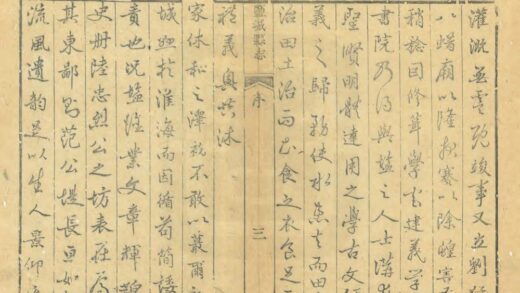 灌溉並享既竣事又立劉
以啨廟以隆報賽以除蝗害
稍稔因修葺學宮建義學
書院乃得與鹽之人士講
聖賢明體達用之學古文
義之歸務使水患去而田
治田土治而民食之衣食足
禮義興共沐
鹽城縣志
序
三
家休和之澤詎不敢以蕞爾
城懸於淮海而因循苟簡諉
責也況鹽雖業文章輝
史册陸忠烈公之坊表在
其東鄙則范公堤長亘如
流風遺韵足以生人景仰